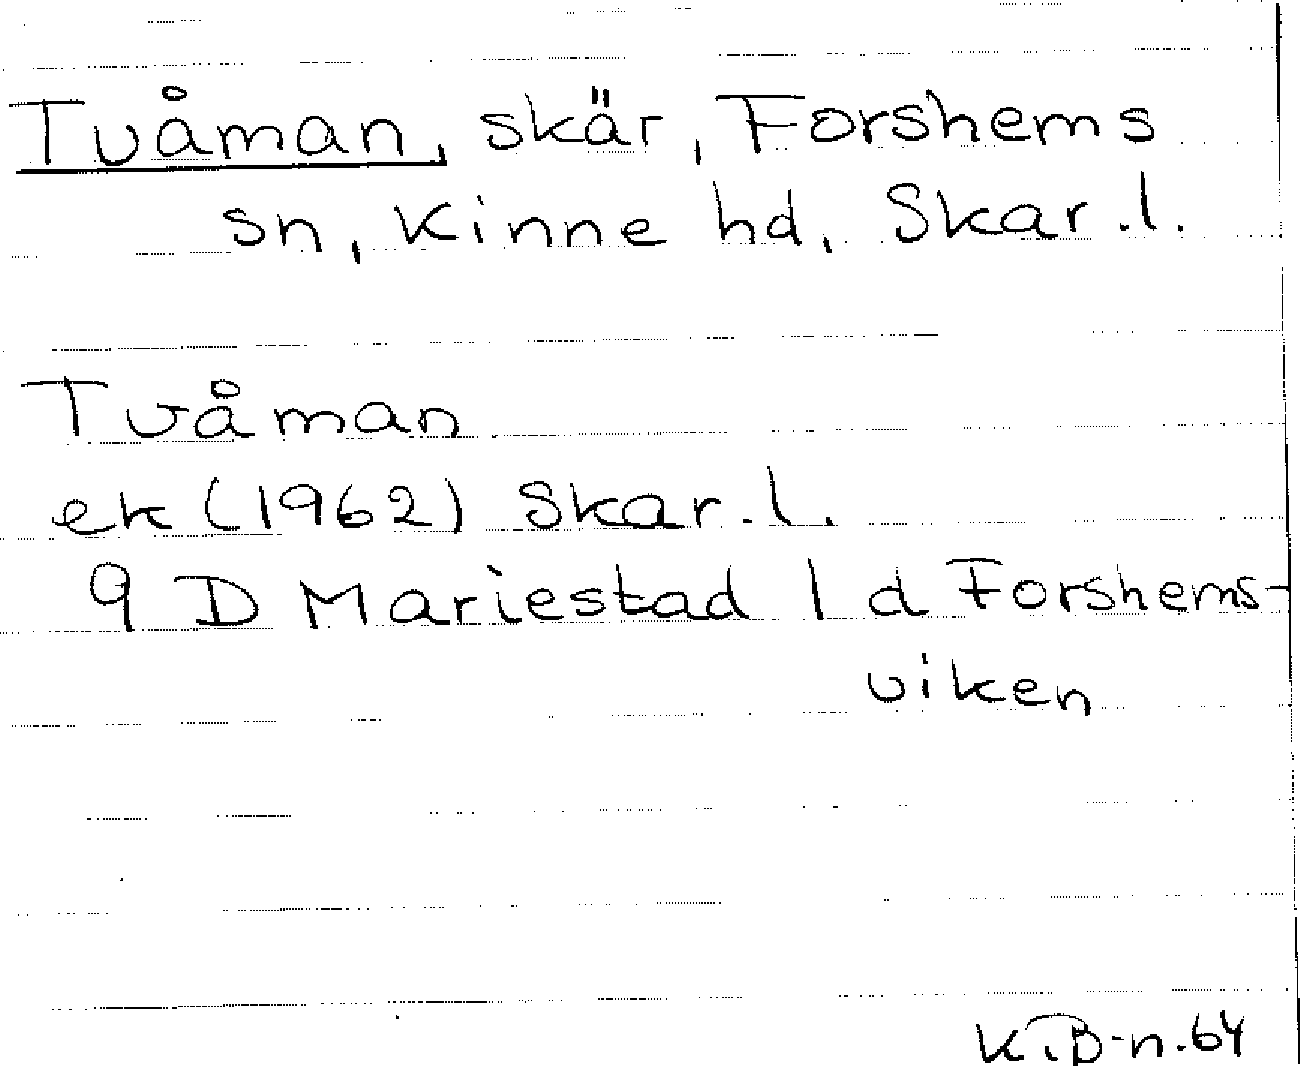 Tvåman, skär, Forshems
sn, Kinne hd, Skar. l.
Tvåman
ek (1962) Skar. l.
9 D Mariestad 1 d Forshems-
viken
K.B-n. 64